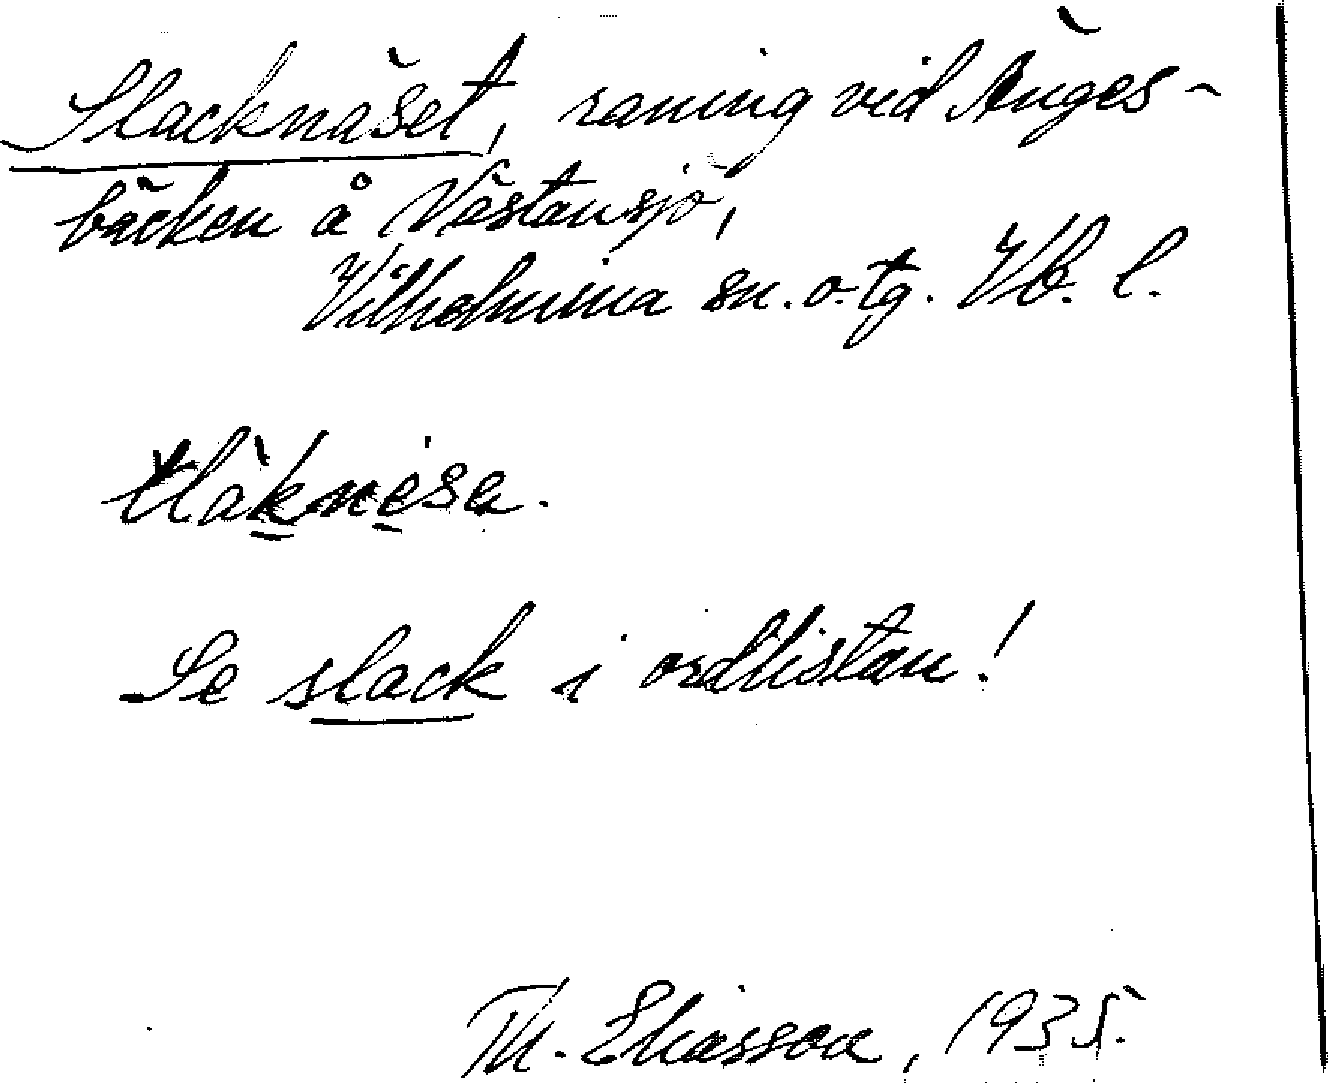 Slacknäset, raning vid Änges-
bäcken å Västansjö,
Vilhelmina sn. o. tg. Vb. l.
Se slack i ordlistan!
Th. Eliasson, 1935.